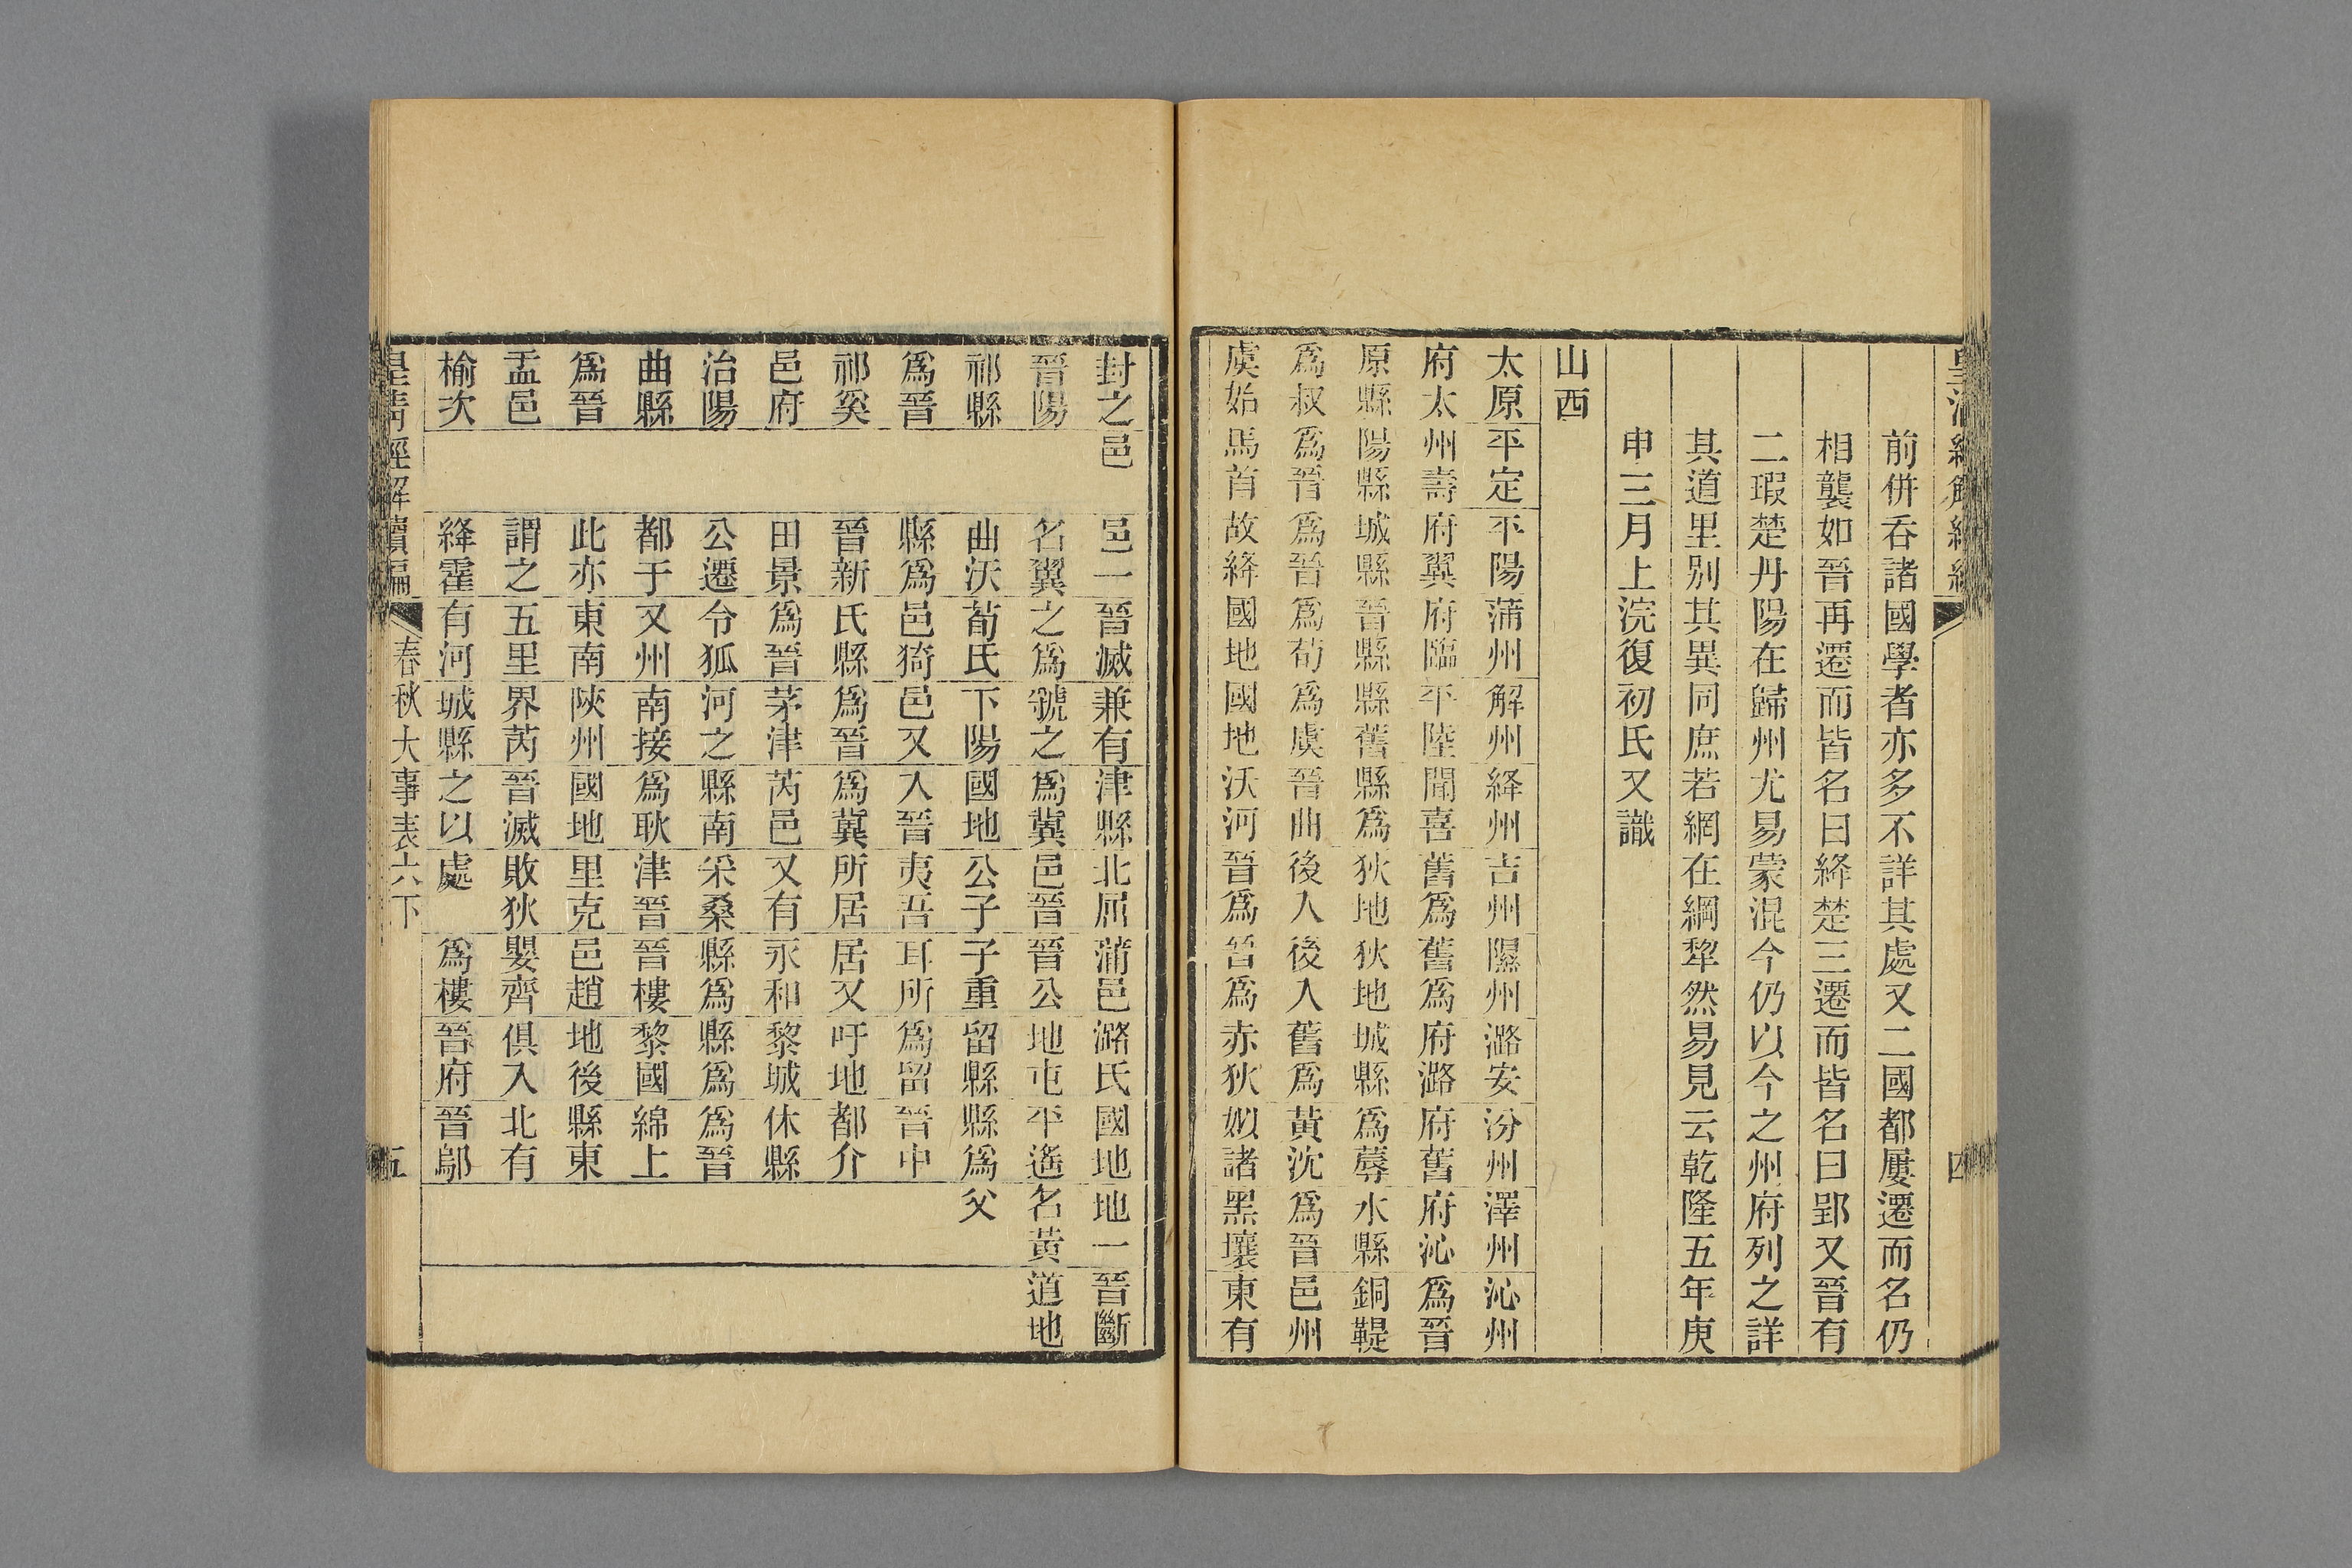 前併吞諸國學者亦多不詳其處又二國都屢遷而名仍
相襲如晉再遷而皆名曰絳楚三遷而皆名曰郢又晉有
二瑕楚丹陽在歸州尤易蒙混今仍以今之州府列之詳
其道里別其異同庶若網在綱犂然易見云乾隆五年庚
申三月上浣復初氏又識
山西
太原平定平陽蒲州解州絳州吉州隰州潞安汾州澤州沁州
府太州壽府翼府臨平陸聞喜舊爲舊爲府潞府舊府沁爲晉
原縣陽縣城縣晉縣縣舊縣爲狄地狄地城縣爲蓐水縣銅鞮
爲叔爲晉爲晉爲荀爲虞晉曲後入後入舊爲黃沈爲晉邑州
虞始馬首故絳國地國地沃河晉爲晉爲赤狄姒諸黑壤東有
封之邑 邑一晉滅兼有津縣北屈蒲邑潞氏國地地一晉斷
晉陽 名翼之爲虢之爲冀邑晉晉公地屯平遙名黃道地
祁縣 曲沃荀氏下陽國地公子子重留縣縣爲父
爲晉 縣爲邑猗邑又入晉夷吾耳所爲留晉中
祁奚 晉新氏縣爲晉爲冀所居居又吁地都介
邑府 田景爲晉茅津芮邑又有永和黎城休縣
治陽 公遷令狐河之縣南采桑縣爲縣爲爲晉
曲縣 都于又州南接爲耿津晉晉樓黎國綿上
爲晉 此亦東南陝州國地里克邑趙地後縣東
盂邑 謂之五里界芮晉滅敗狄嬰齊俱入北有
榆次 絳霍有河城縣之以處 爲樓晉府晉鄔
皇清經解續編 春秋大事表六下 五